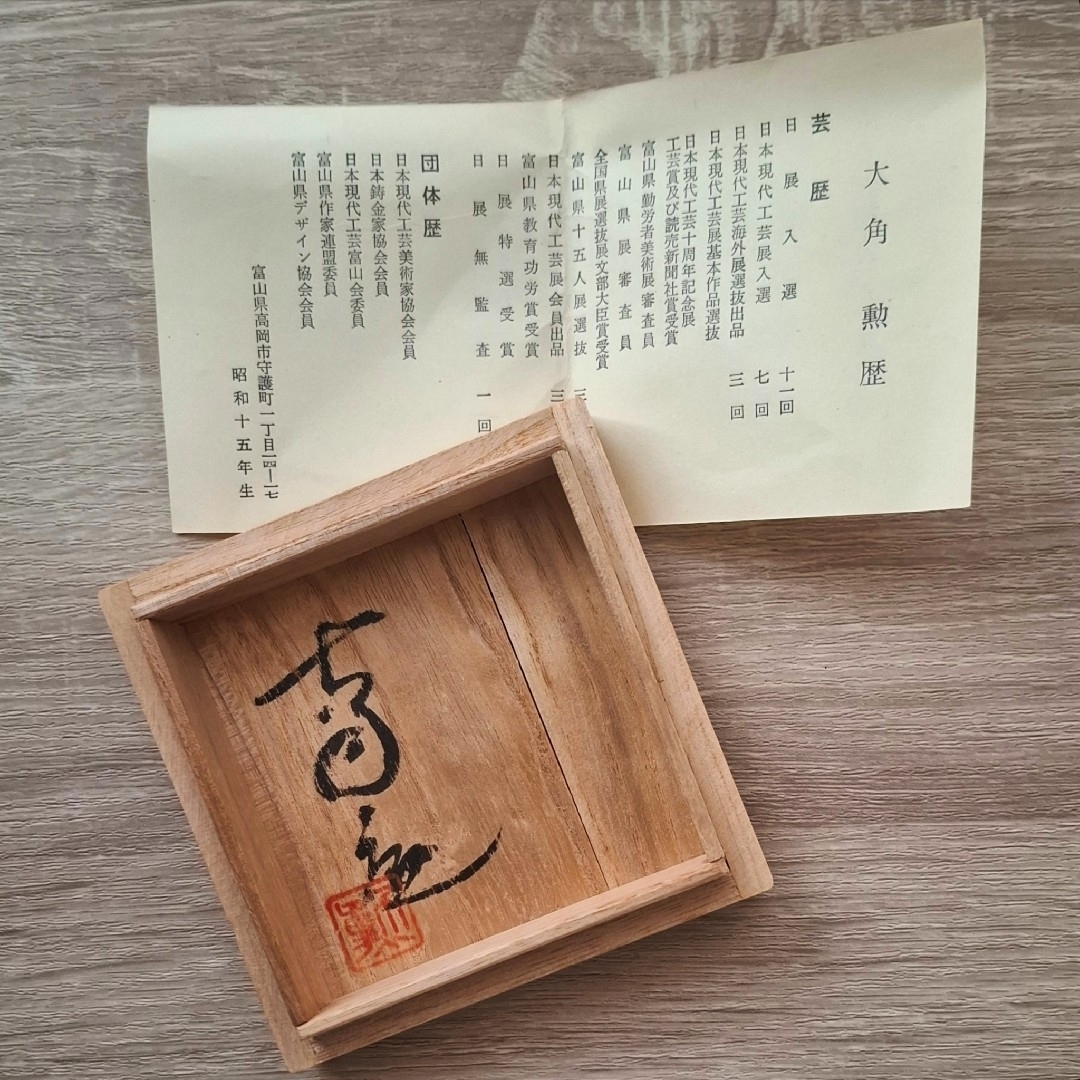 大角勲歴
芸歴
日展入選 十一回
日本現代工芸展入選 七回
日本現代工芸海外展選抜出品 三回
日本現代工芸展基本作品選抜
日本現代工芸十周年記念展
工芸賞及び読売新聞社賞受賞
富山県勤労者美術展審査員
富山県展審査員
全国県展選抜展文部大臣賞受賞
富山県十五人展選抜
日本現代工芸展会員出品
富山県教育功労賞受賞
日展特選受賞
日展無監査 一回
団体歴
日本現代工芸美術家協会会員
日本鋳金家協会会員
日本現代工芸富山会委員
富山県作家連盟委員
富山県デザイン協会会員
富山県高岡市守護町一丁目一四―一七
昭和十五年生